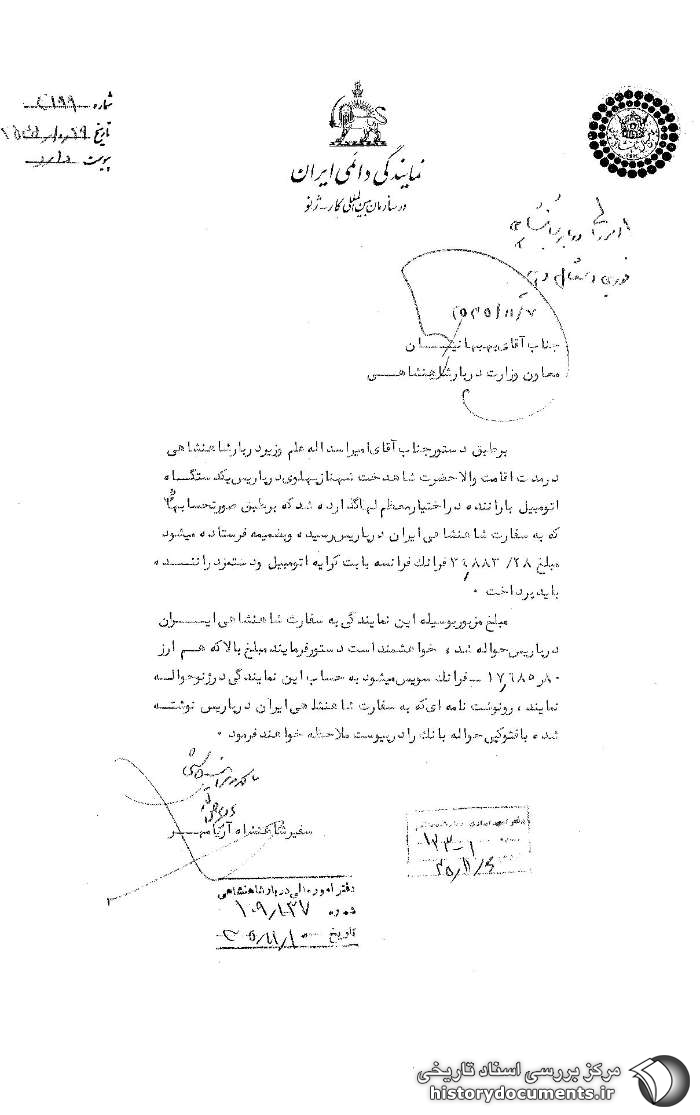 شماره ۲۱۹۹
تاریخ
پیوست دارد
نمایندگی دائمی ایران
در سازمان بین‌المللی کار - ژنو
جناب آقای بهبهانیان
معاون وزارت دربار شاهنشاهی
برطبق دستور جناب آقای امیر اسداله علم وزیر دربار شاهنشاهی
در مدت اقامت والاحضرت شاهدخت شهناز پهلوی در پاریس یکدستگاه
اتومبیل با راننده در اختیار معظم لها گذارده شد که برطبق صورتحسابهائی
که به سفارت شاهنشاهی ایران در پاریس رسیده و بضمیمه فرستاده میشود
مبلغ ۳۶,۸۸۳/۲۸ فرانک فرانسه بابت کرایه اتومبیل و دستمزد راننده
باید پرداخت .
مبلغ مزبور بوسیله این نمایندگی به سفارت شاهنشاهی ایران
در پاریس حواله شد ، خواهشمند است دستور فرمایند مبلغ بالا که هم ارز
۱۷,۶۸۵ر۸۰ فرانک سویس میشود به حساب این نمایندگی در ژنو حواله
نمایند ، رونوشت نامه ای که به سفارت شاهنشاهی ایران در پاریس نوشته
شده با فتوکپی حواله بانک را در پیوست ملاحظه خواهند فرمود .
سفیر شاهنشاه آریامهر
دفتر امور مالی دربار شاهنشاهی
شماره
تاریخ
مرکز بررسی اسناد تاریخی
historydocuments.ir